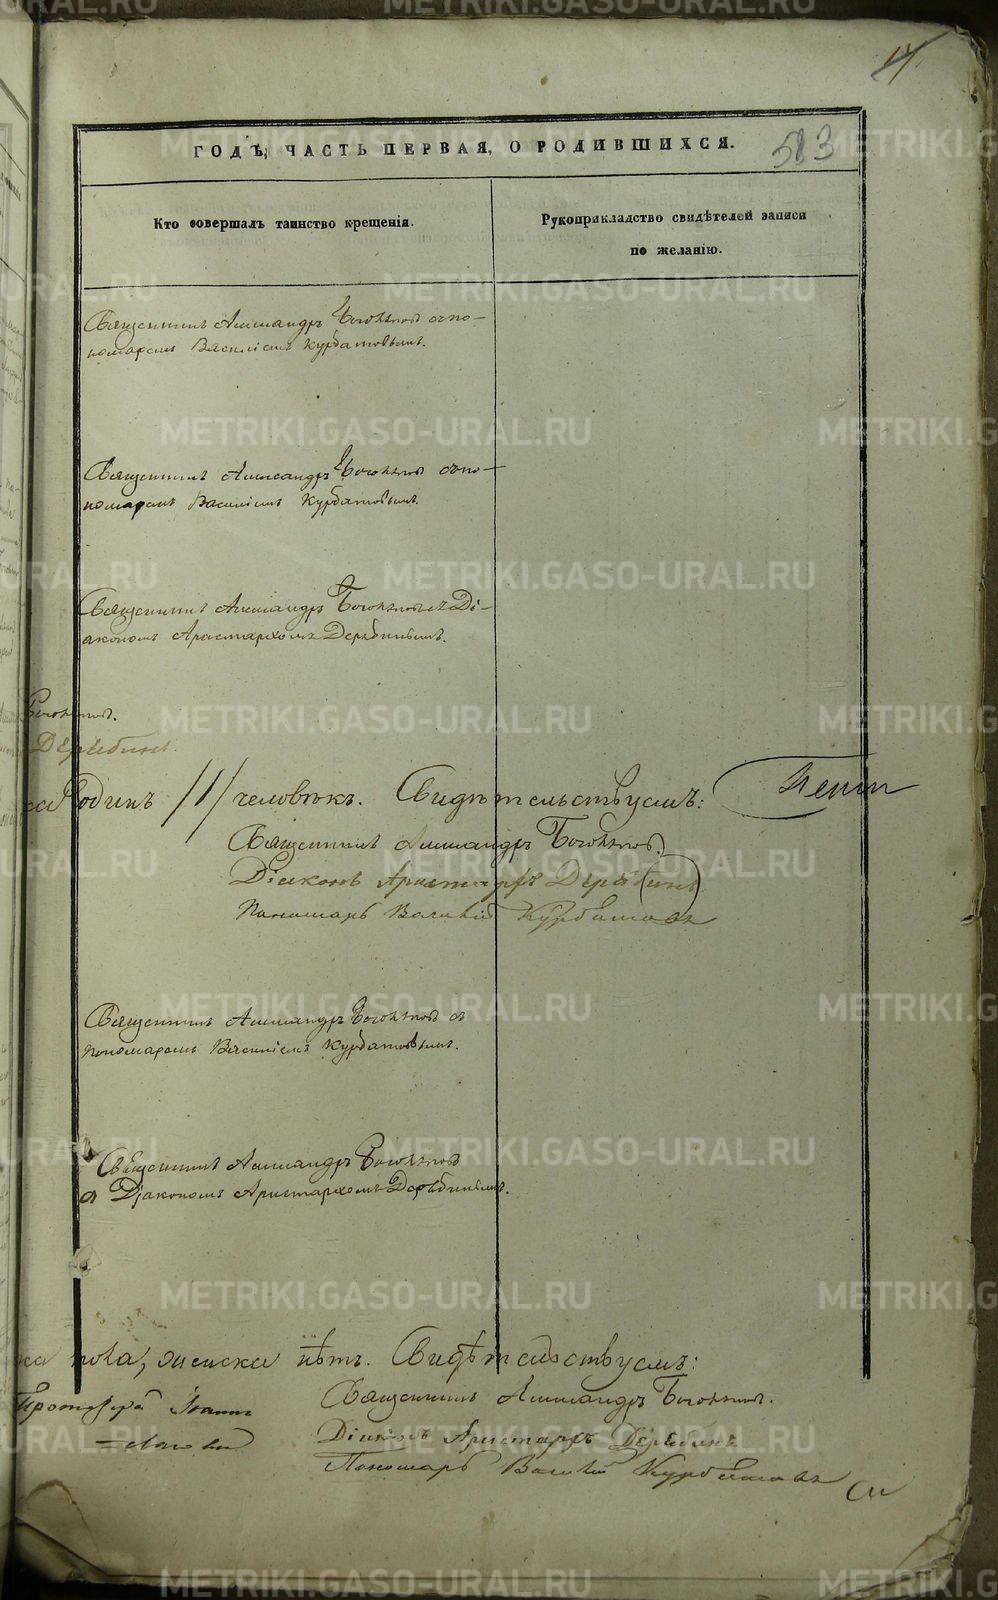 17.
583
ГОДѢ, ЧАСТЬ ПЕРВАЯ, О РОДИВШИХСЯ.
Кто совершалъ таинство крещенія.
Рукоприкладство свидѣтелей записи
по желанію.
Священникъ Александръ съ по-
номаремъ Василіемъ Курбатовымъ.
Священникъ Александръ съ по-
номаремъ Василіемъ Курбатовымъ.
Священникъ Александръ съ Ді-
акономъ Аристархомъ Дерябинымъ.
Дерябинъ.
одинъ /1/ человѣкъ. Свидѣтельствуемъ:
Священникъ Александръ
Діаконъ Аристархъ Дерябинъ
Пономарь Василій Курбатовъ
Священникъ Александръ съ
пономаремъ Василіемъ Курбатовымъ.
Священникъ Александръ
съ Діакономъ Аристархомъ Дерябинымъ.
пола, женска нѣтъ. Свидѣтельствуемъ:
Священникъ Александръ
Іоаннъ
Діаконъ Аристархъ Дерябинъ
Пономарь Василій Курбатовъ
METRIKI.GASO-URAL.RU